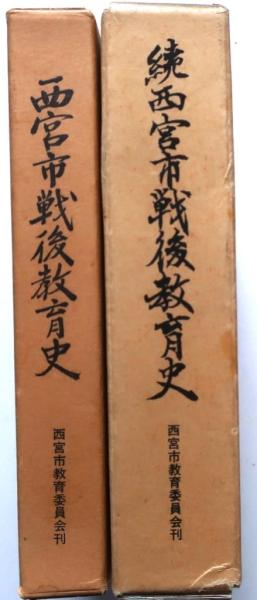 西宮市戦後教育史
西宮市教育委員会刊
続西宮市戦後教育史
西宮市教育委員会刊